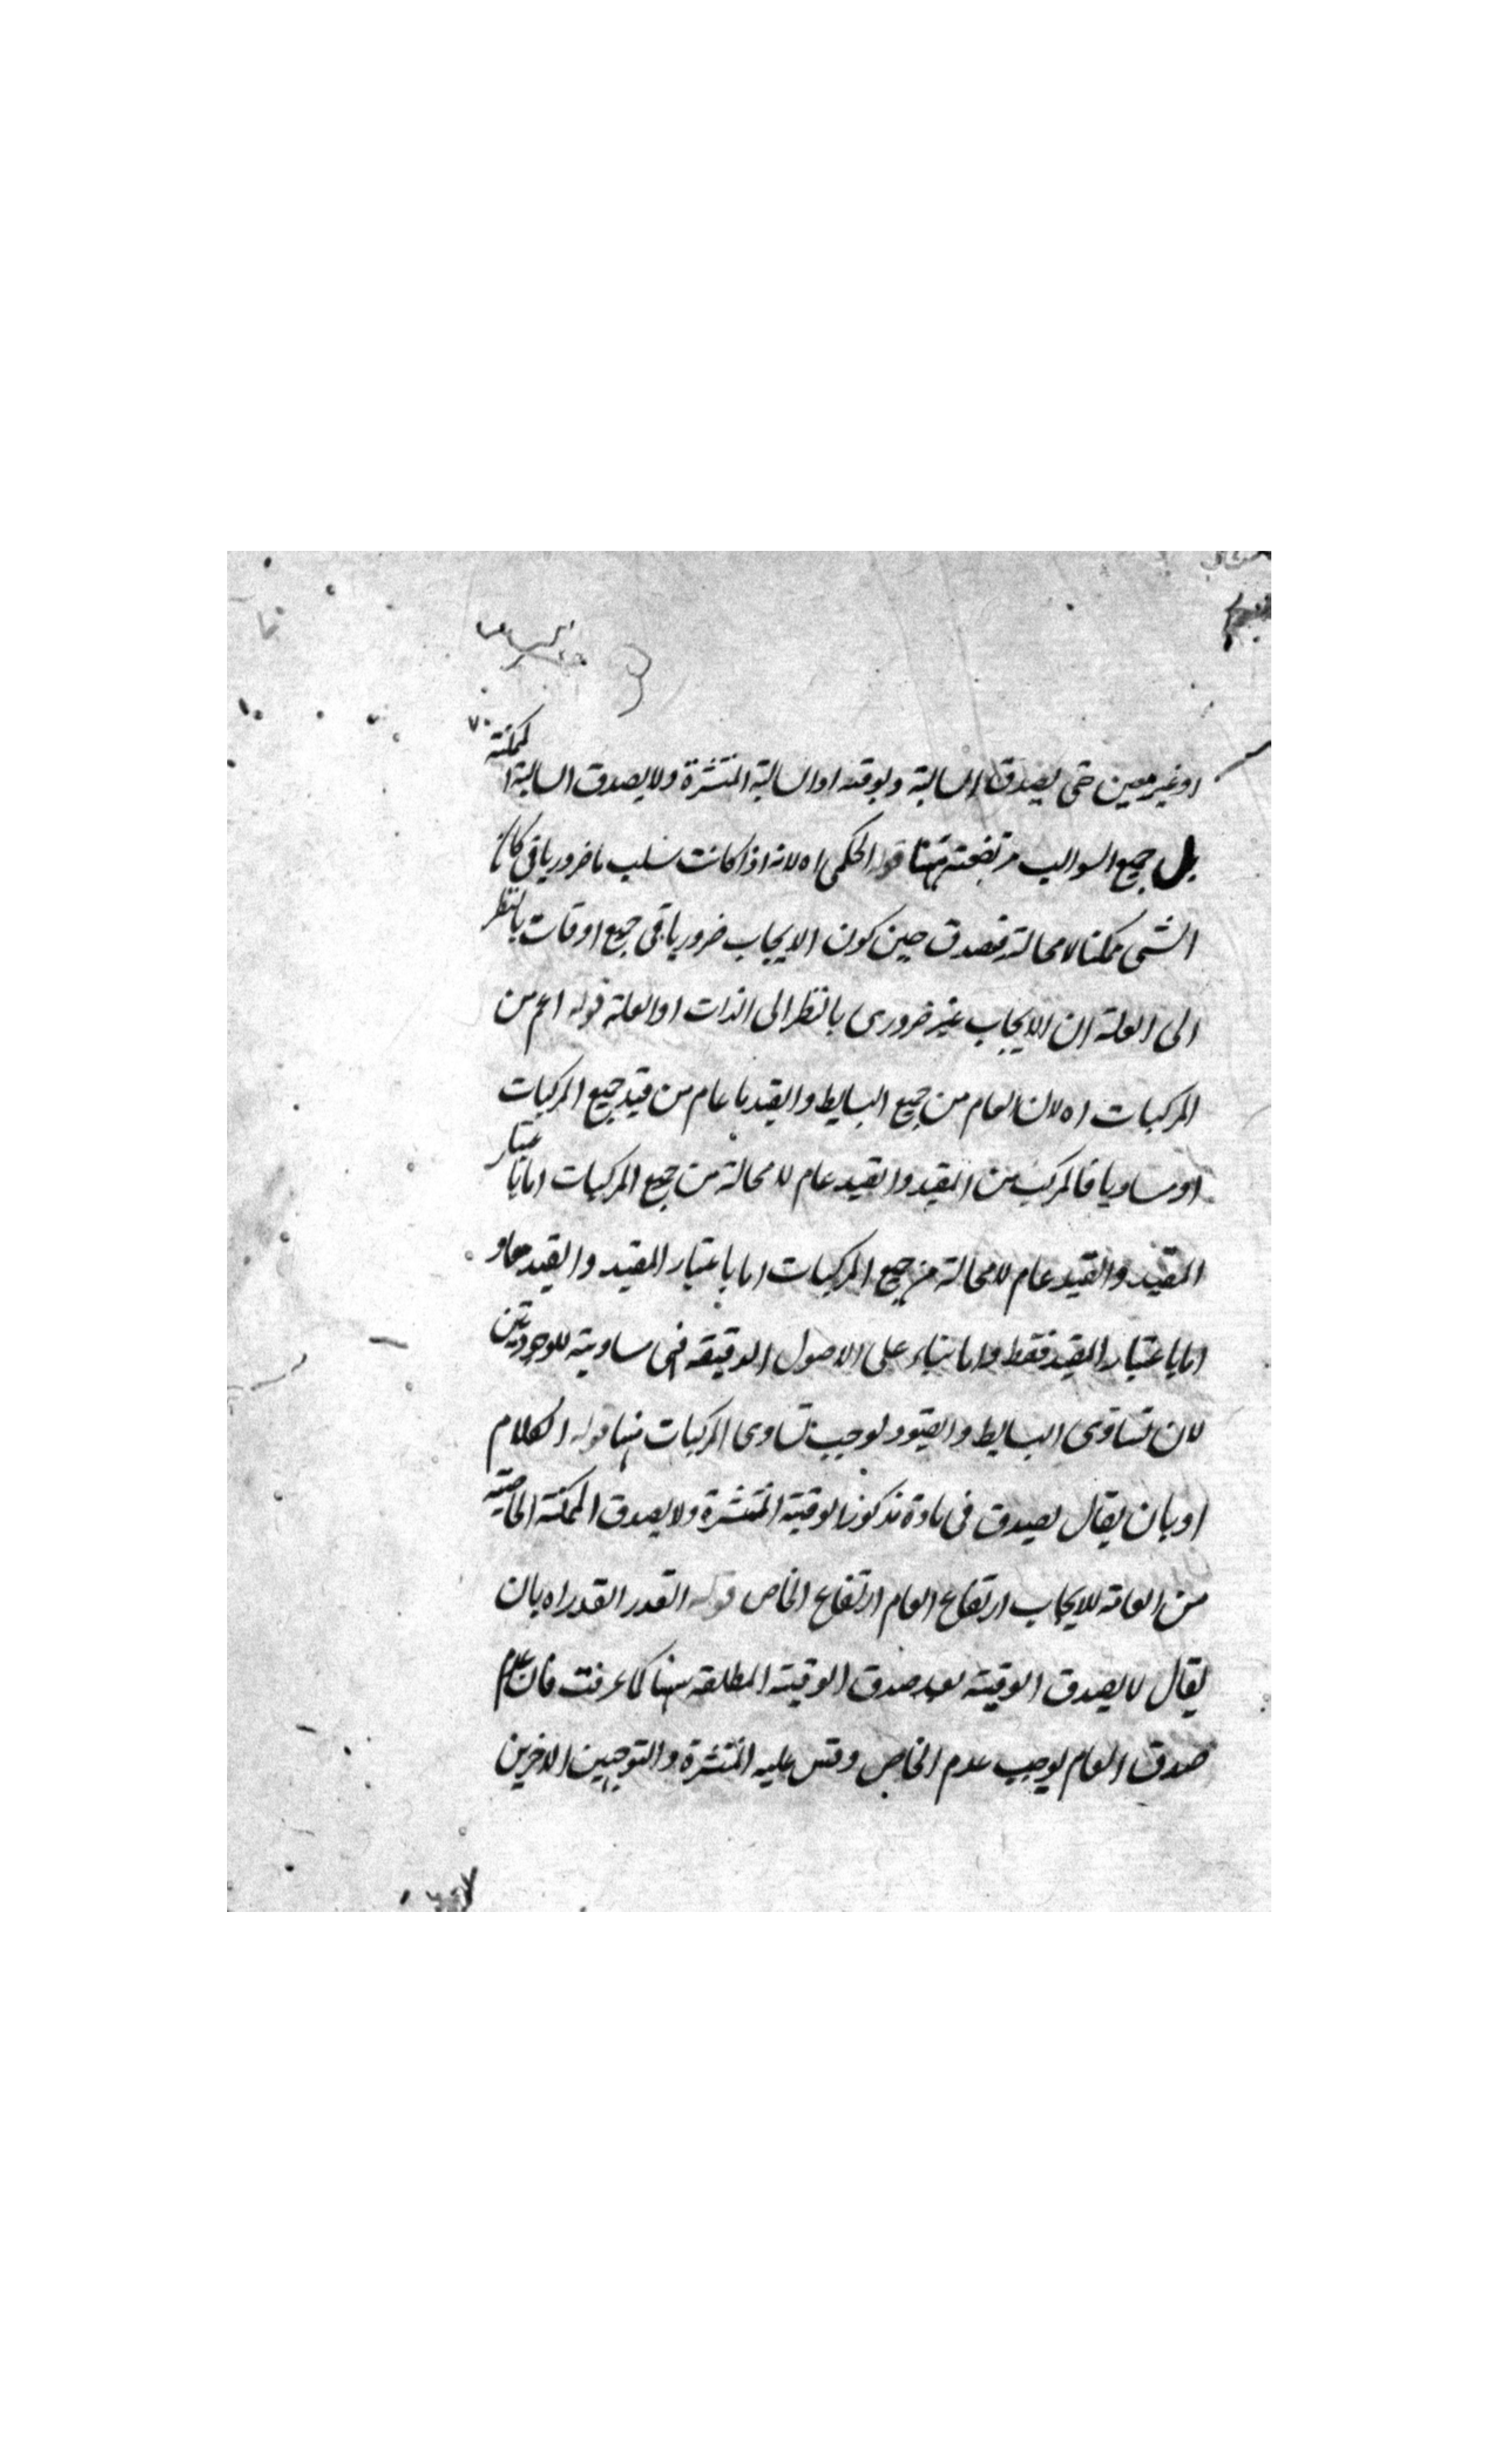 او غير معين حتى يصدق السالبة وبوقته او السالبة المنتشرة ولا يصدق السالبة الممكنة
بل جميع السوالب مرتفعة ههنا قوله الحكمى اه لانه اذا كانت سلب ما ضروريا فى كان
الشى ممكنا لا محالة فصدق حين كون الايجاب ضروريا فى جميع اوقات بالنظر
الى العلة ان الايجاب غير ضرورى بالنظر الى الذات او العلة قوله اعم من
المركبات اه لان العام من جميع البسايط والقيد ما عام من قيد جميع المركبات
او مساويا فالمركب من المقيد والقيد عام لا محالة من جميع المركبات اما باعتبار
المقيد والقيد عام لا محالة من جميع المركبات اما باعتبار المقيد والقيد معا و
اما باعتبار المقيد فقط واما بناء على الاصول الدقيقه فهى مساوية للوجوديتين
لان تساوى البسايط والقيود يوجب تساوى المركبات منها قوله الكلام
او بان يقال يصدق فى مادة مذكورة الوقتية المنتشرة ولا يصدق الممكنة الخاصية
من العامة للايجاب ارتفاع العام ارتفاع الخاص قوله القدر القدر اه بان
يقال لا يصدق الوقتية بعد صدق الوقتية المطلقه ههنا كما عرفت فان عدم
صدق العام يوجب عدم الخاص وقس عليه المنتشرة والتوجيهين الاخرين